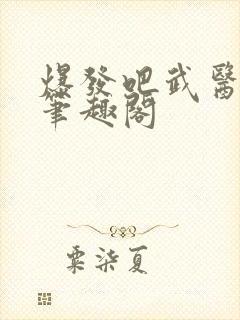 爆發吧武醫
筆趣閣
粟柒夏